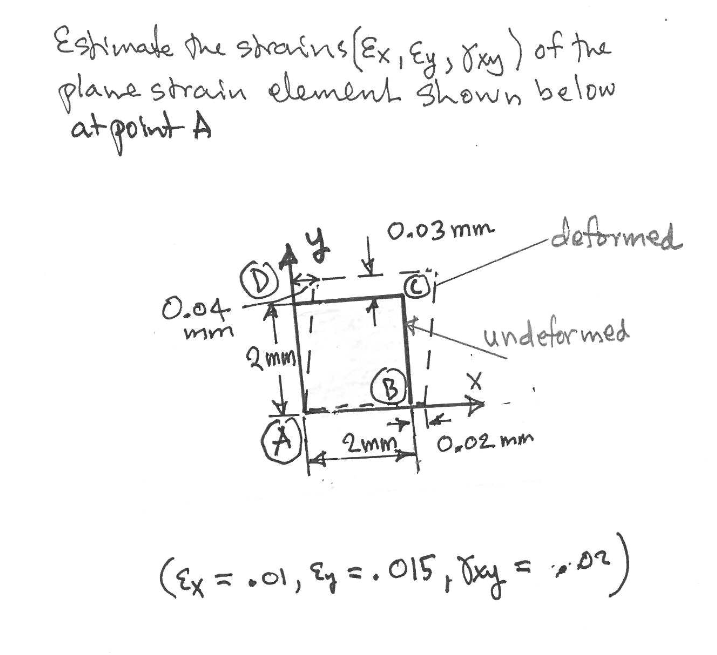 Estimate the strains (εx, εy, γxy) of the
plane strain element shown below
at point A
y
0.03 mm
deformed
D
C
0.04
mm
undeformed
2 mm
B
x
A
2mm
0.02 mm
(εx = .01, εy = .015, γxy = .02)